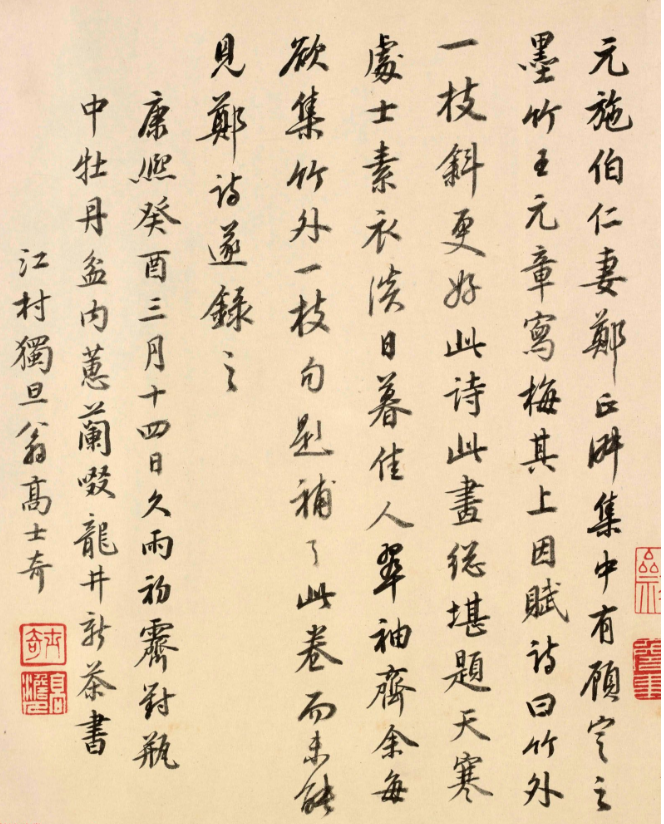 元施伯仁妻鄭正淑集中有顧定之
墨竹王元章寫梅其上因賦詩曰竹外
一枝斜更好此詩此畫総堪題天寒
處士素衣淡日暮佳人翠袖齊余每
欲集竹外一枝句題補之此卷而未能
見鄭詩遂錄之
康熙癸酉三月十四日久雨初霽對瓶
中牡丹盆內蕙蘭啜龍井新茶書
江村獨旦翁高士奇
士奇